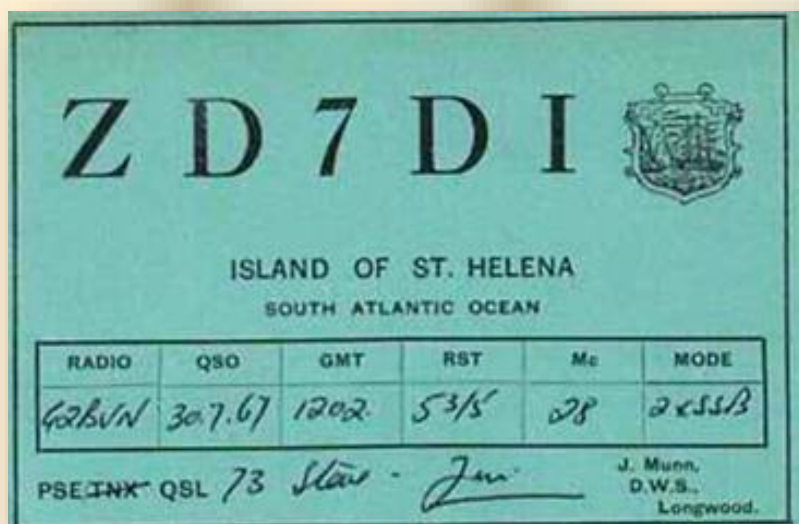 ZD7DI
ISLAND OF ST. HELENA
SOUTH ATLANTIC OCEAN
RADIO QSO GMT RST Mc MODE
G2BVN 30.7.67 1202. 53/5 28 2xSSB
PSE TNX QSL 73 Steve - Jim
J. Munn,
D.W.S.,
Longwood.